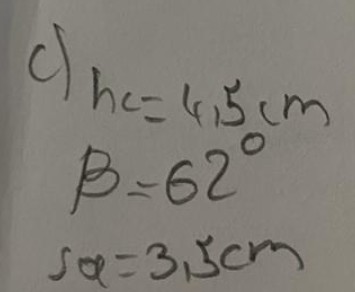 c) hc=4,5cm
β=62°
sa=3,5cm